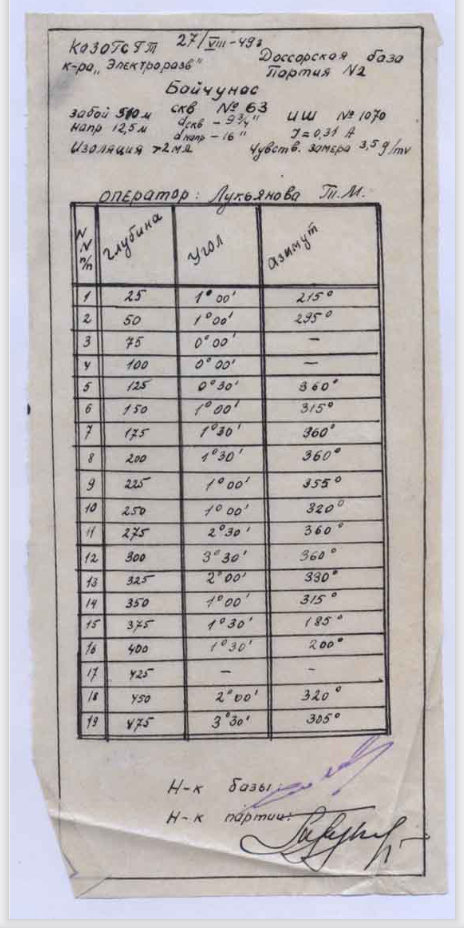 КОЗОТGТТ 27/VIII-49г
Доссорская база
к-ра „Электроразв"
Партия №2
Байчунас
забой 510м скв № 63 ИШ № 1070
dскв - 9 3/4"
напр 12,5м J = 0,31 А
dнапр - 16"
Изоляция >2мΩ Чувств. замера 3,5 g/mv
Оператор: Лукьянова Т.М.
N.N п/п глубина угол азимут
1 25 1°00' 215°
2 50 1°00' 295°
3 75 0°00' —
4 100 0°00' —
5 125 0°30' 360°
6 150 1°00' 315°
7 175 1°30' 360°
8 200 1°30' 360°
9 225 1°00' 355°
10 250 1°00' 320°
11 275 2°30' 360°
12 300 3°30' 360°
13 325 2°00' 330°
14 350 1°00' 315°
15 375 1°30' 185°
16 400 1°30' 200°
17 425 — -
18 450 2°00' 320°
19 475 3°30' 305°
Н-к базы:
Н-к партии: